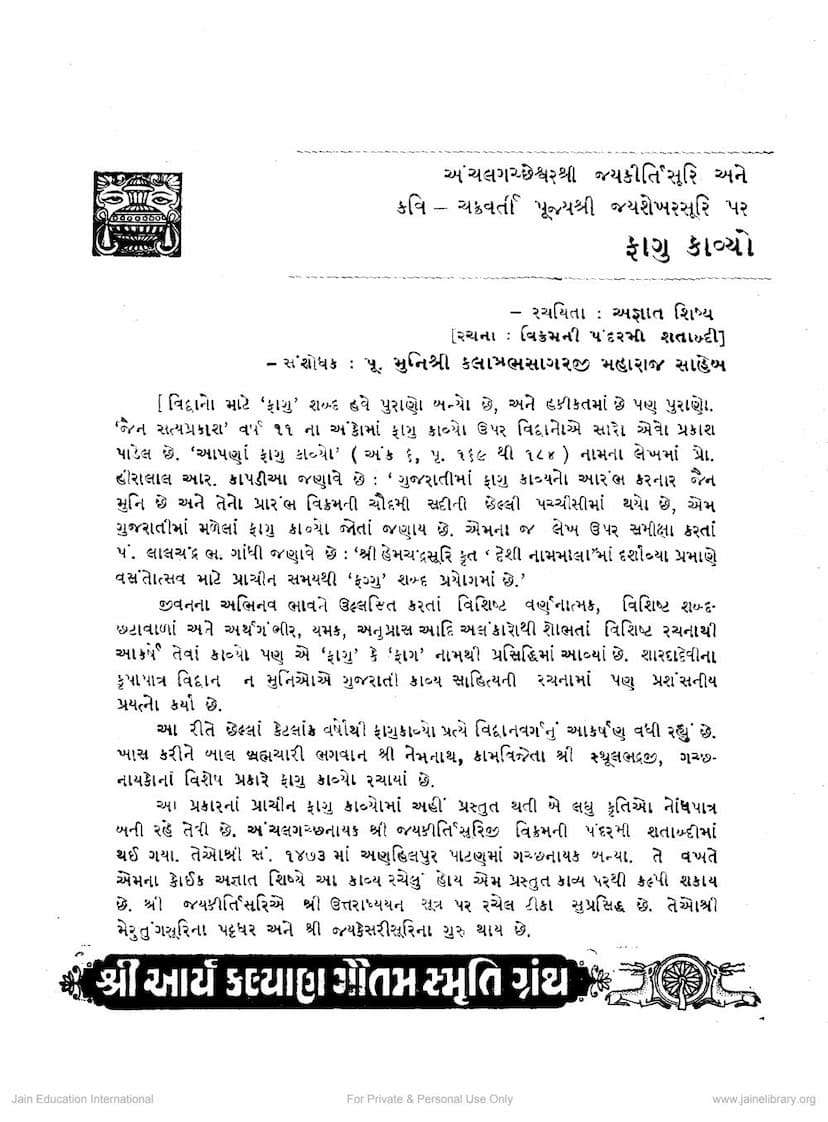 અંચલગચ્છેશ્વરશ્રી જયકીર્તિસૂરિ અને
કવિ – ચક્રવર્તી પૂજ્યશ્રી જયશેખરસૂરિ પર
ફાગુ કાવ્યો
– રચયિતા : અજ્ઞાત શિષ્ય
[રચના : વિક્રમની પંદરમી શતાબ્દી]
– સંશોધક : પૂ. મુનિશ્રી કલાપ્રભસાગરજી મહારાજ સાહેબ
[ વિદ્વાનો માટે ‘ફાગુ’ શબ્દ હવે પુરાણો બન્યો છે, અને હકીકતમાં છે પણ પુરાણો.
‘જૈન સત્યપ્રકાશ’ વર્ષ ૧૧ ના અંકોમાં ફાગુ કાવ્યો ઉપર વિદ્વાનોએ સારો એવો પ્રકાશ
પાડેલ છે. ‘આપણાં ફાગુ કાવ્યો’ ( અંક ૬, પૃ. ૧૬૯ થી ૧૮૪ ) નામના લેખમાં પ્રો.
હીરાલાલ આર. કાપડીઆ જણાવે છે : ‘ ગુજરાતીમાં ફાગુ કાવ્યનો આરંભ કરનાર જૈન
મુનિ છે અને તેનો પ્રારંભ વિક્રમની ચૌદમી સદીની છેલ્લી પચ્ચીસીમાં થયો છે, એમ
ગુજરાતીમાં મળેલાં ફાગુ કાવ્યો જોતાં જણાય છે. એમના જ લેખ ઉપર સમીક્ષા કરતાં
પં. લાલચંદ્ર ભ. ગાંધી જણાવે છે : ‘શ્રી હેમચંદ્રસૂરિ કૃત ‘ દેશી નામમાલા’માં દર્શાવ્યા પ્રમાણે
વસંતોત્સવ માટે પ્રાચીન સમયથી ‘ફગ્ગુ’ શબ્દ પ્રયોગમાં છે.’
જીવનના અભિનવ ભાવને ઉલ્લસિત કરતાં વિશિષ્ટ વર્ણનાત્મક, વિશિષ્ટ શબ્દ-
છટાવાળાં અને અર્થગંભીર, યમક, અનુપ્રાસ આદિ અલંકારોથી શોભતાં વિશિષ્ટ રચનાથી
આકર્ષે તેવાં કાવ્યો પણ એ ‘ફાગુ’ કે ‘ફાગ’ નામથી પ્રસિદ્ધિમાં આવ્યાં છે. શારદાદેવીના
કૃપાપાત્ર વિદ્વાન ન મુનિઓએ ગુજરાતી કાવ્ય સાહિત્યની રચનામાં પણ પ્રશંસનીય
પ્રયત્નો કર્યા છે.
આ રીતે છેલ્લાં કેટલાંક વર્ષોથી ફાગુકાવ્યો પ્રત્યે વિદ્વાનવર્ગનું આકર્ષણ વધી રહ્યું છે.
ખાસ કરીને બાલ બ્રહ્મચારી ભગવાન શ્રી નેમનાથ, કામવિજેતા શ્રી સ્થૂલભદ્રજી, ગચ્છ-
નાયકોનાં વિશેષ પ્રકારે ફાગુ કાવ્યો રચાયાં છે.
આ પ્રકારનાં પ્રાચીન ફાગુ કાવ્યોમાં અહીં પ્રસ્તુત થતી બે લઘુ કૃતિઓ નોંધપાત્ર
બની રહે તેવી છે. અંચલગચ્છનાયક શ્રી જયકીર્તિસૂરિજી વિક્રમની પંદરમી શતાબ્દીમાં
થઈ ગયા. તેઓશ્રી સં. ૧૪૭૩ માં અણહિલપુર પાટણમાં ગચ્છનાયક બન્યા. તે વખતે
એમના કોઈક અજ્ઞાત શિષ્યે આ કાવ્ય રચેલું હોય એમ પ્રસ્તુત કાવ્ય પરથી કલ્પી શકાય
છે. શ્રી જયકીર્તિસૂરિએ શ્રી ઉત્તરાધ્યયન સૂત્ર પર રચેલ ટીકા સુપ્રસિદ્ધ છે. તેઓશ્રી
મેરુતુંગસૂરિના પટ્ટધર અને શ્રી જયકેસરીસૂરિના ગુરુ થાય છે.
શ્રી આર્ય કલ્યાણ ગૌતમ સ્મૃતિ ગ્રંથ
Jain Education International
For Private & Personal Use Only
www.jainelibrary.org